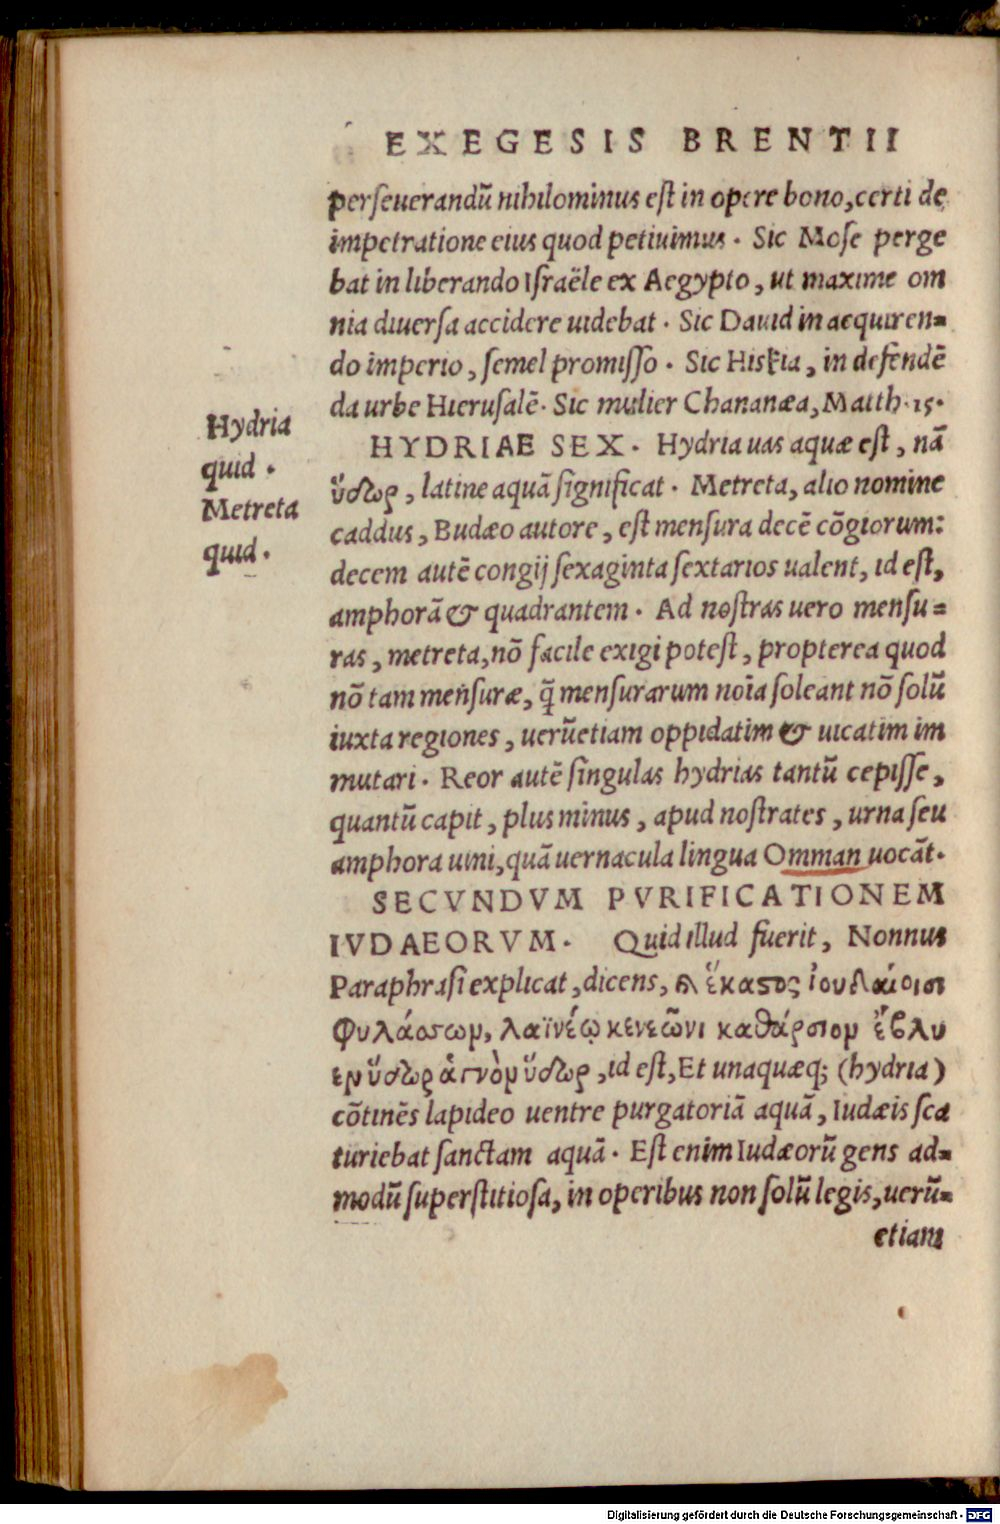 EXEGESIS BRENTII
perſeuerandũ nihilominus eſt in opere bono, certi de
impetratione eius quod petiuimus. Sic Moſe perge
bat in liberando Iſraële ex Aegypto, ut maxime om
nia diuerſa accidere uidebat. Sic Dauid in acquiren=
do imperio, ſemel promiſſo. Sic Hiskia, in defendẽ
da urbe Hieruſalẽ. Sic mulier Chananæa, Matth. 15.
Hydria
quid.
Metreta
quid.
HYDRIAE SEX. Hydria uas aquæ eſt, nã
ὕδωρ, latine aquã ſignificat. Metreta, alio nomine
caddus, Budæo autore, eſt menſura decẽ cõgiorum:
decem autẽ congij ſexaginta ſextarios ualent, id eſt,
amphorã & quadrantem. Ad noſtras uero menſu=
ras, metreta, nõ facile exigi poteſt, propterea quod
nõ tam menſuræ, q̃ menſurarum noĩa ſoleant nõ ſolũ
iuxta regiones, uerũetiam oppidatim & uicatim im
mutari. Reor autẽ ſingulas hydrias tantũ cepiſſe,
quantũ capit, plus minus, apud noſtrates, urna ſeu
amphora uini, quã uernacula lingua Omman uocãt.
SECVNDVM PVRIFICATIONEM
IVDAEORVM. Quid illud fuerit, Nonnus
Paraphraſi explicat, dicens, ἕκαστος ἰουδαίοισι
φυλάσσων, λαϊνέῳ κενεῶνι καθάρσιον ἔβλυ
εν ὕδωρ ἁγνὸν ὕδωρ, id eſt, Et unaquæq; (hydria)
cõtinẽs lapideo uentre purgatoriã aquã, Iudæis ſca
turiebat ſanctam aquã. Eſt enim Iudæorũ gens ad=
modũ ſuperſtitioſa, in operibus non ſolũ legis, uerũ=
etiam
Digitalisierung gefördert durch die Deutsche Forschungsgemeinschaft - DFG